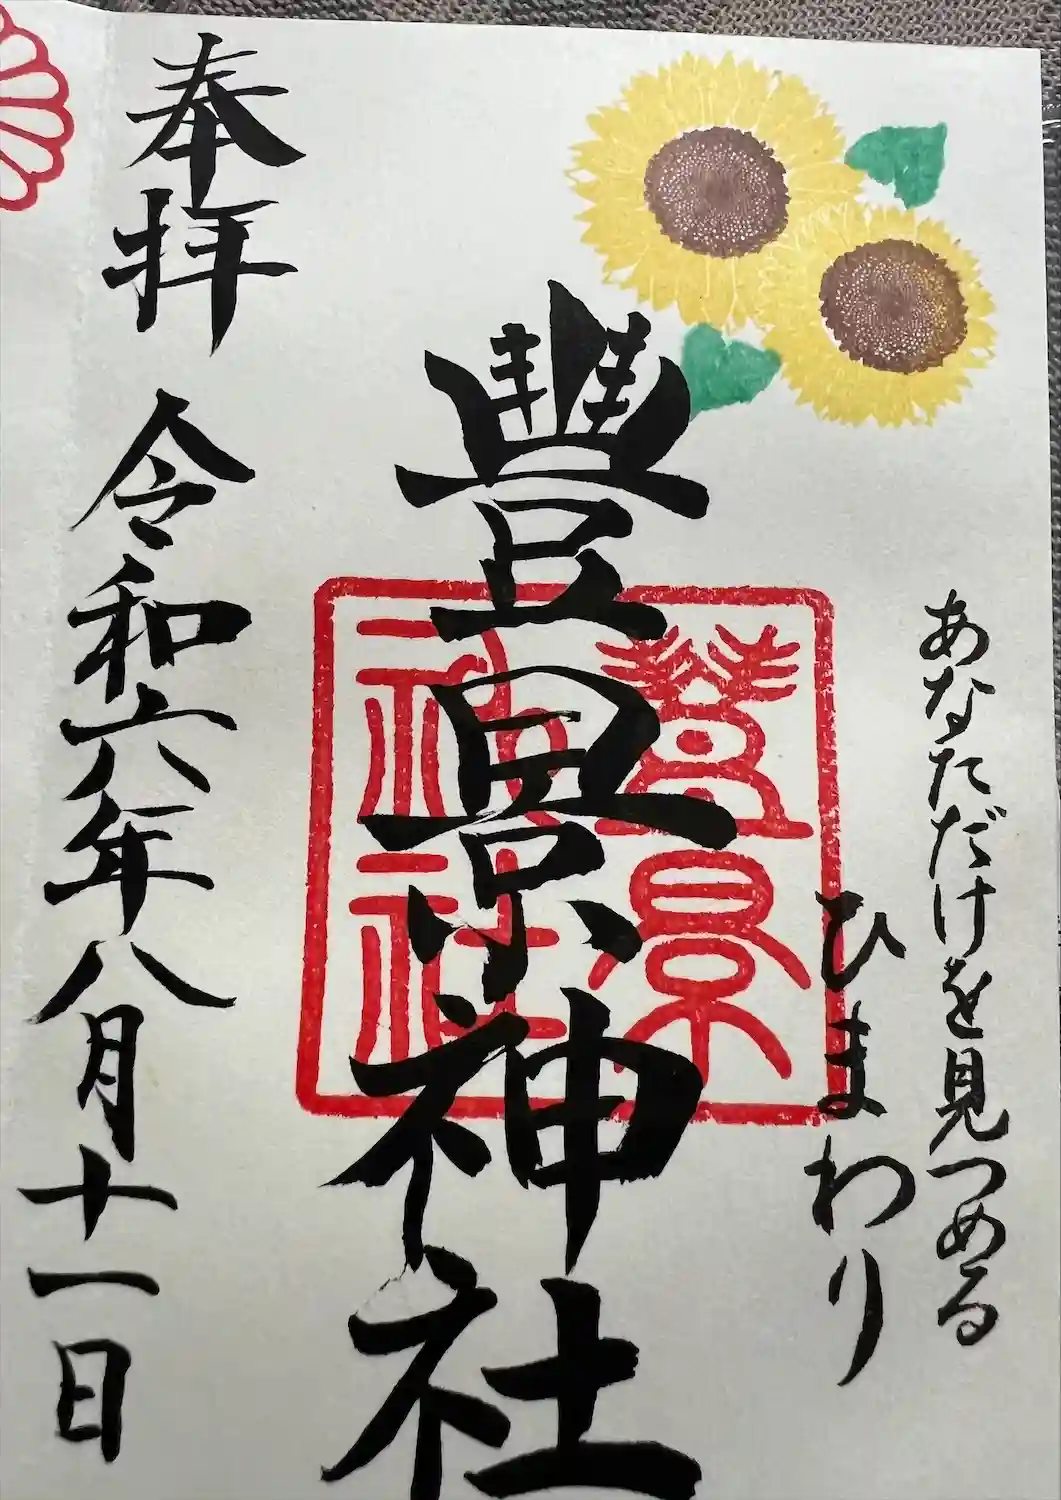 あなただけを見つめる
ひまわり
豊景神社
豊景
神社
奉拝
令和六年八月十一日